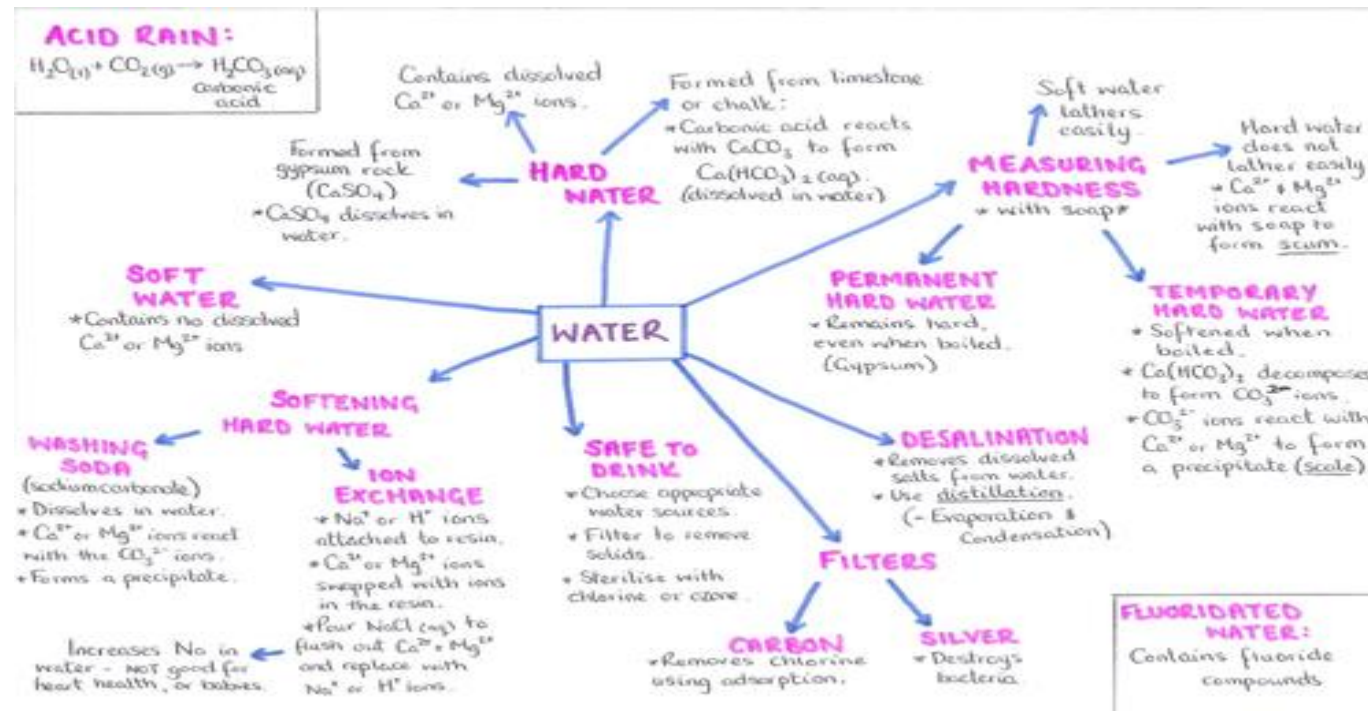 ACID RAIN:
H₂O(l) + CO₂(g) → H₂CO₃(aq)
Carbonic
acid
Contains dissolved
Ca²⁺ or Mg²⁺ ions.
Formed from limestone
or chalk:
*Carbonic acid reacts
with CaCO₃ to form
Ca(HCO₃)₂(aq).
(dissolved in water)
Formed from
gypsum rock
(CaSO₄)
*CaSO₄ dissolves in
water.
HARD
WATER
Soft water
lathers
easily.
Hard water
does not
lather easily
*Ca²⁺ & Mg²⁺
ions react
with soap to
form scum.
MEASURING
HARDNESS
*with soap*
SOFT
WATER
*Contains no dissolved
Ca²⁺ or Mg²⁺ ions
WATER
PERMANENT
HARD WATER
*Remains hard,
even when boiled.
(Gypsum)
TEMPORARY
HARD WATER
*Softened when
boiled.
*Ca(HCO₃)₂ decomposes
to form CO₃²⁻ ions.
*CO₃²⁻ ions react with
Ca²⁺ or Mg²⁺ to form
a precipitate (scale)
SOFTENING
HARD WATER
WASHING
SODA
(sodium carbonate)
*Dissolves in water.
*Ca²⁺ or Mg²⁺ ions react
with the CO₃²⁻ ions.
*Forms a precipitate.
ION
EXCHANGE
*Na⁺ or H⁺ ions
attached to resin.
*Ca²⁺ or Mg²⁺ ions
swapped with ions
in the resin.
*Pour NaCl(aq) to
flush out Ca²⁺ + Mg²⁺
and replace with
Na⁺ or H⁺ ions.
Increases Na in
water - NOT good for
heart health, or babies.
SAFE TO
DRINK
*Choose appropriate
water sources.
*Filter to remove
solids.
*Sterilise with
chlorine or ozone.
DESALINATION
*Removes dissolved
salts from water.
*Use distillation.
(- Evaporation &
Condensation)
FILTERS
CARBON
*Removes chlorine
using adsorption.
SILVER
*Destroys
bacteria
FLUORIDATED
WATER:
Contains fluoride
compounds